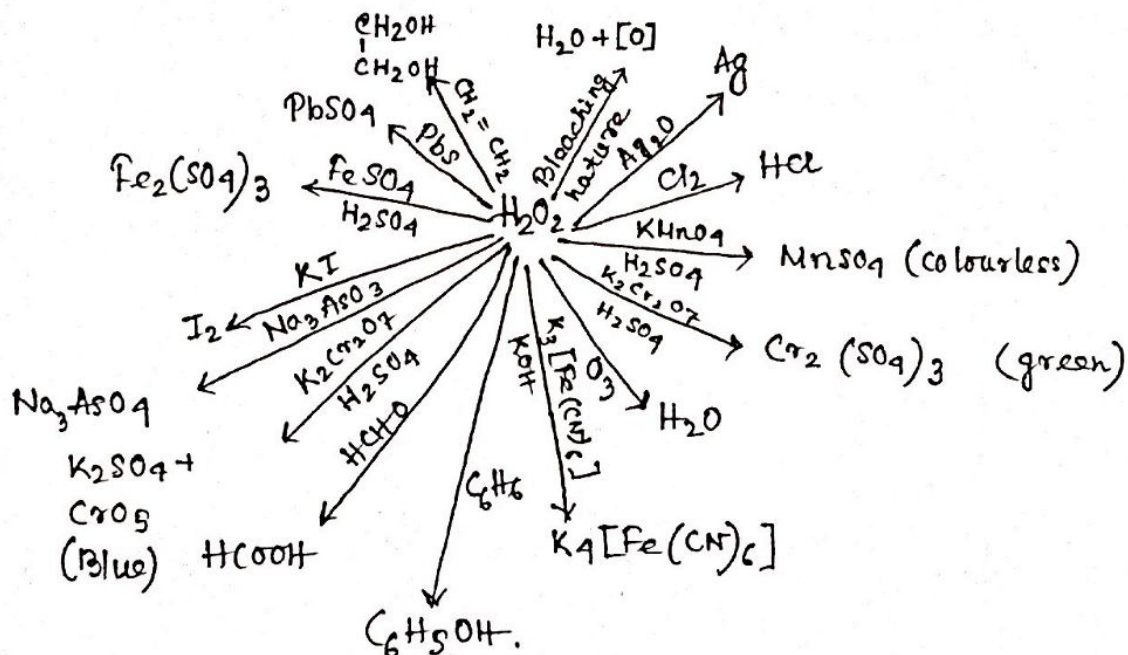 CH2OH
CH2OH
CH2=CH2
H2O + [O]
Bleaching
nature
Ag
Ag2O
PbSO4
PbS
Fe2(SO4)3
FeSO4
H2SO4
H2O2
Cl2
HCl
KMnO4
H2SO4
MnSO4 (colourless)
K2Cr2O7
H2SO4
Cr2(SO4)3 (green)
KI
I2
Na3AsO3
Na3AsO4
K2Cr2O7
H2SO4
K2SO4 +
CrO5
(Blue)
HCHO
HCOOH
C6H6
C6H5OH.
KOH
K3[Fe(CN)6]
K4[Fe(CN)6]
O3
H2O